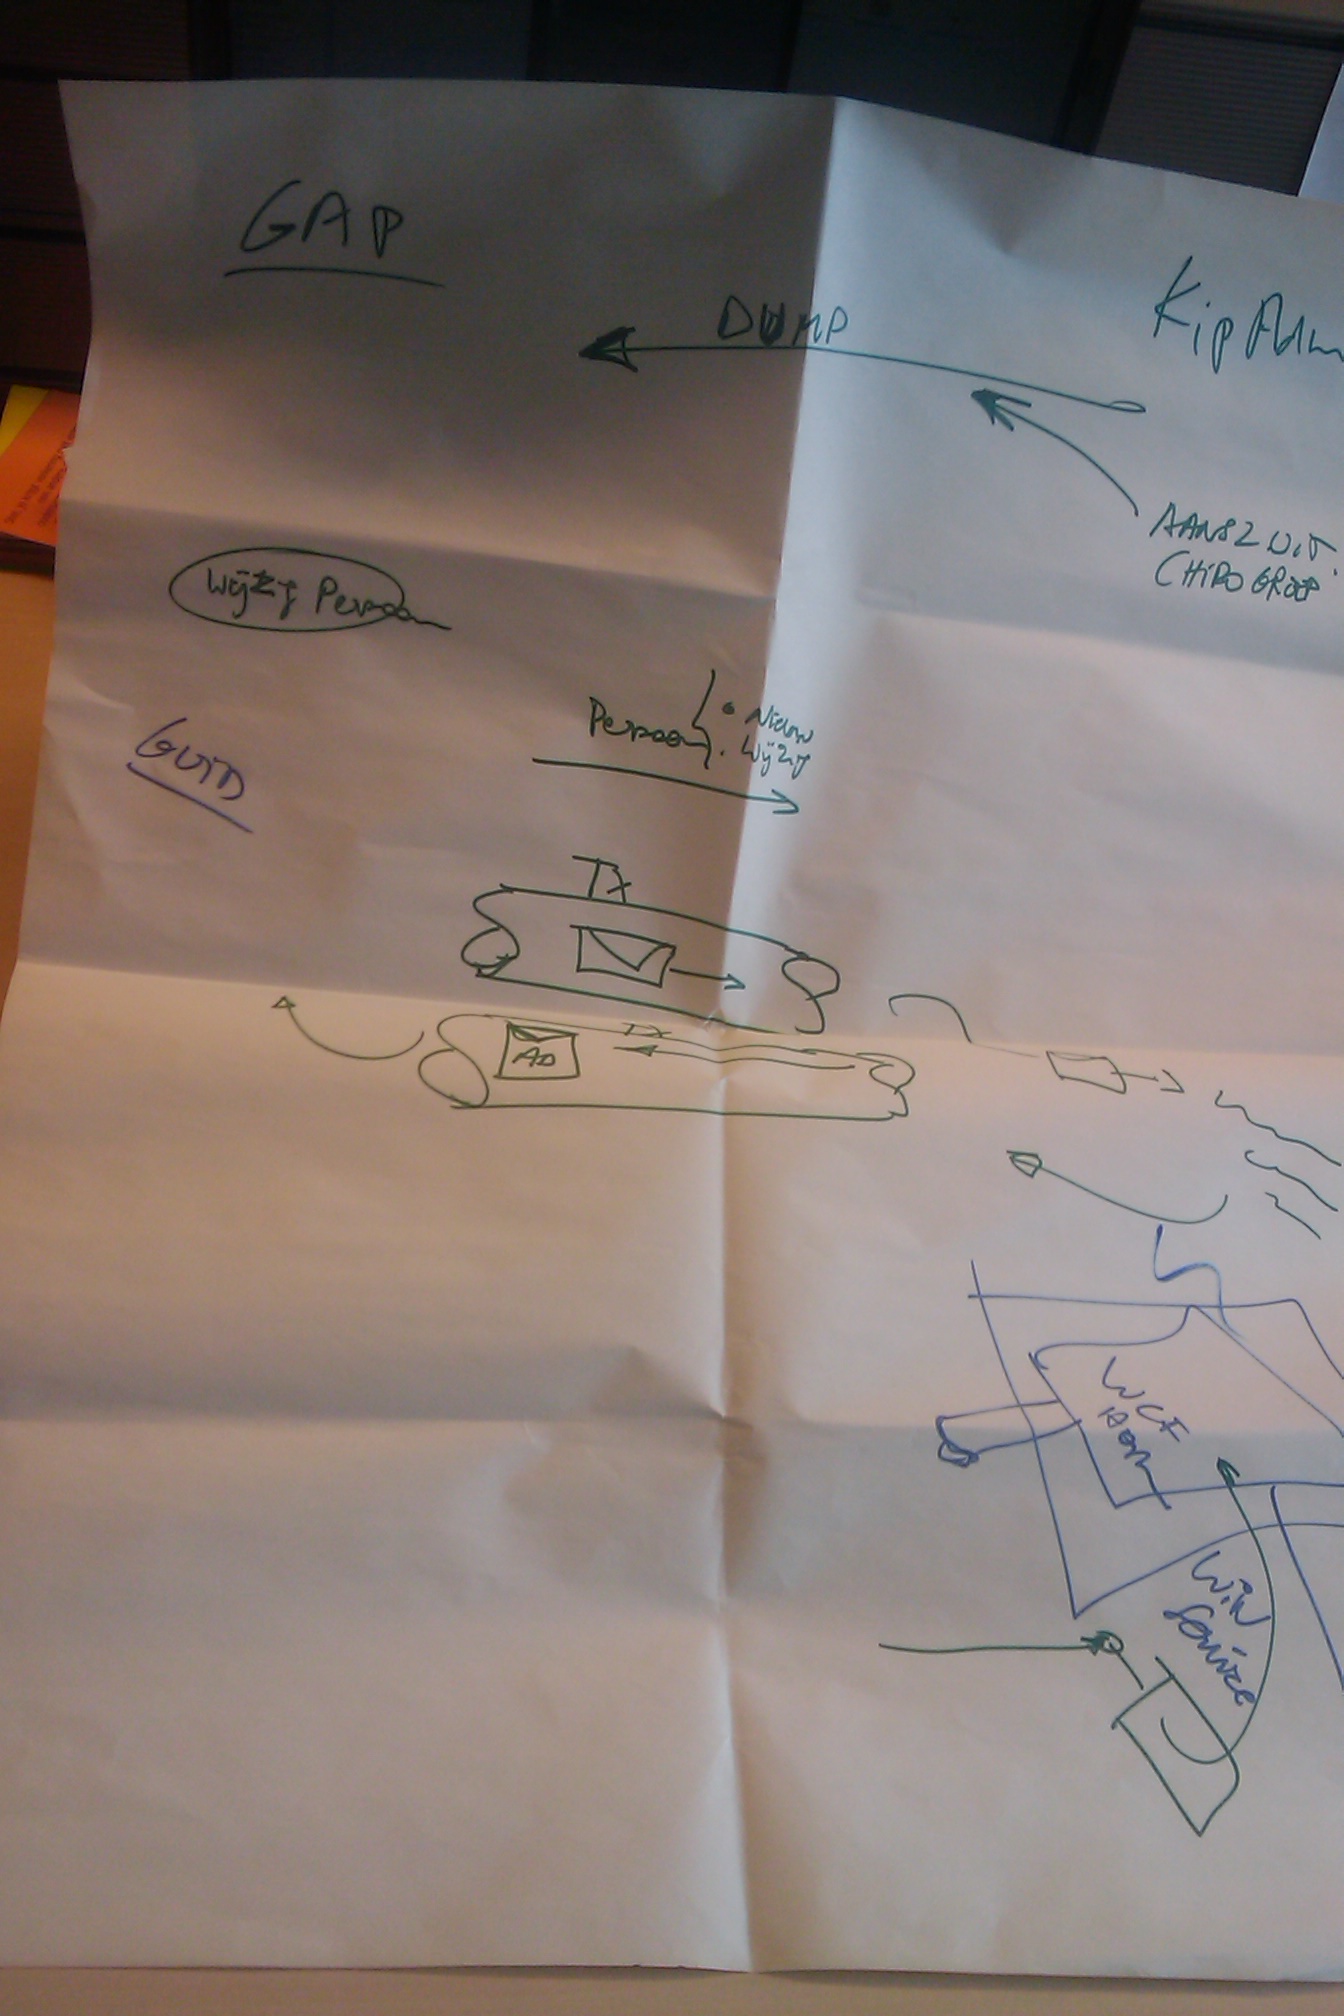 GAP
DUMP
KipAdm
CHIROGROEP
Wijzig Persoon
Persoon
• Nieuw
• Wijzig
GUID
TX
TX
AD
WCF
Win
Service